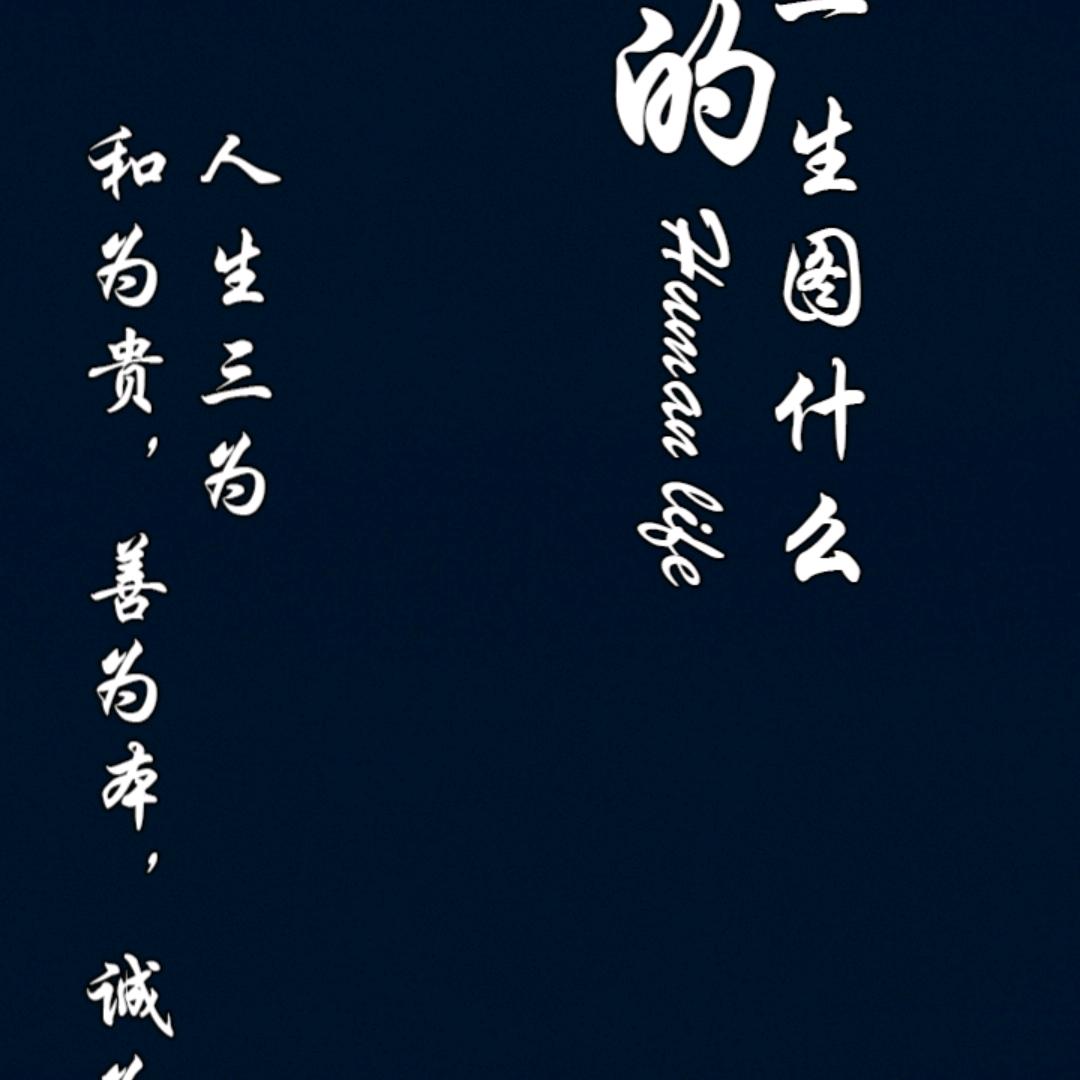 生图什么
的
Human life
人生三为
和为贵，善为本，誠